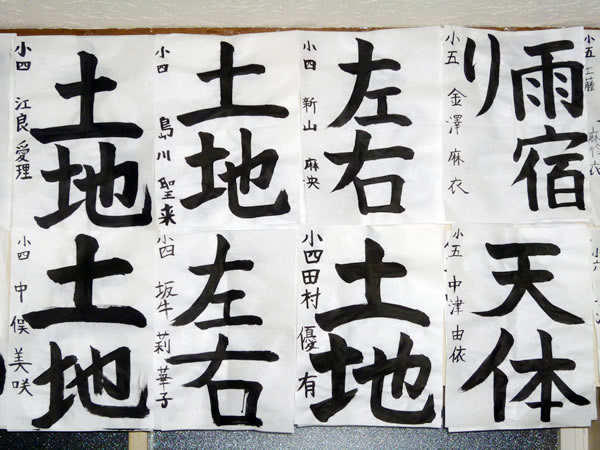 土地
小四 江良 愛理
土地
小四 島川 聖来
左右
小四 新山 麻央
雨宿り
小五 金澤 麻衣
小五 工藤
土地
小四 中俣 美咲
左右
小四 坂牛 莉華子
土地
小四 田村 優有
天体
小五 中津 由依
小六